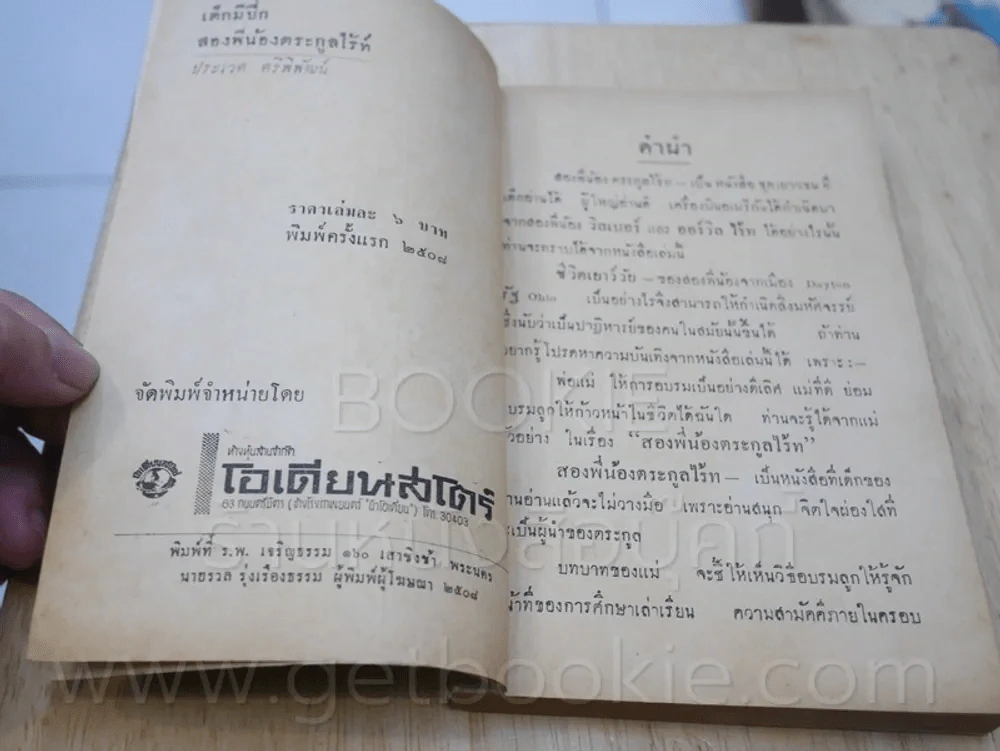 เด็กมีปีก
สองพี่น้องตระกูลไร้ท์
ประเวศ ศรีพิพัฒน์
ราคาเล่มละ ๖ บาท
พิมพ์ครั้งแรก ๒๕๐๘
จัดพิมพ์จำหน่ายโดย
ห้างหุ้นส่วนจำกัด
โอเดียนสโตร์
63 ถนนตรีมิตร (ข้างโรงภาพยนตร์ "นิวโอเดียน") โทร. 30403
พิมพ์ที่ ร.พ. เจริญธรรม ๑๖๐ เสาชิงช้า พระนคร
นายรวล รุ่งเรืองธรรม ผู้พิมพ์ผู้โฆษณา ๒๕๐๘
คำนำ
สองพี่น้องตระกูลไร้ท — เป็นหนังสือชุดเยาวชน ที่
เด็กอ่านได้ ผู้ใหญ่อ่านดี เครื่องบินอเมริกันได้กำเนิดมา
จากสองพี่น้อง วิลเบอร์ และ ออร์วิล ไร้ท ได้อย่างไรนั้น
ท่านจะทราบได้จากหนังสือเล่มนี้
ชีวิตเยาว์วัย — ของสองพี่น้องจากเมือง Dayton
รัฐ Ohio เป็นอย่างไรจึงสามารถให้กำเนิดสิ่งมหัศจรรย์
ซึ่งนับว่าเป็นปาฏิหารย์ของคนในสมัยนั้นขึ้นได้ ถ้าท่าน
อยากรู้โปรดหาความบันเทิงจากหนังสือเล่มนี้ได้ เพราะ :—
พ่อแม่ ให้การอบรมเป็นอย่างดีเลิศ แม่ที่ดี ย่อม
อบรมลูกให้ก้าวหน้าในชีวิตได้ฉันใด ท่านจะรู้ได้จากแม่
ตัวอย่าง ในเรื่อง “สองพี่น้องตระกูลไร้ท”
สองพี่น้องตระกูลไร้ท — เป็นหนังสือที่เด็กของ
ท่านอ่านแล้วจะไม่วางมือ เพราะอ่านสนุก จิตใจผ่องใสที่
จะเป็นผู้นำของตระกูล
บทบาทของแม่ จะชี้ให้เห็นวิธีอบรมลูกให้รู้จัก
หน้าที่ของการศึกษาเล่าเรียน ความสามัคคีภายในครอบ
BOOKIE
ร้านหนังสือบุ๊คกี้
www.getbookie.com